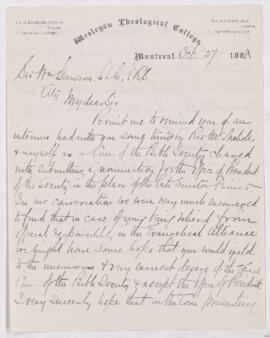 Wesleyan Theological College,
Montreal, Oct 27 188
Sir Wm Dawson LL.D. F.R.S.
City My dear Sir
Permit me to remind you of an
interview had with you some time by Rev Mr Nichols
& myself as a Com of the Bible Society charged
with submitting a nomination for the office of President
of the Society in the place of the late Senator Ferrier
In our conversation we were very much encouraged
to find that in case of your being relieved from
official responsibility in the Evangelical Alliance
we might have some hope that you would yield
to the unanimous & very earnest desire of the
Com. of the Bible Society & accept the office of President
I very sincerely hope that on the Com presenting